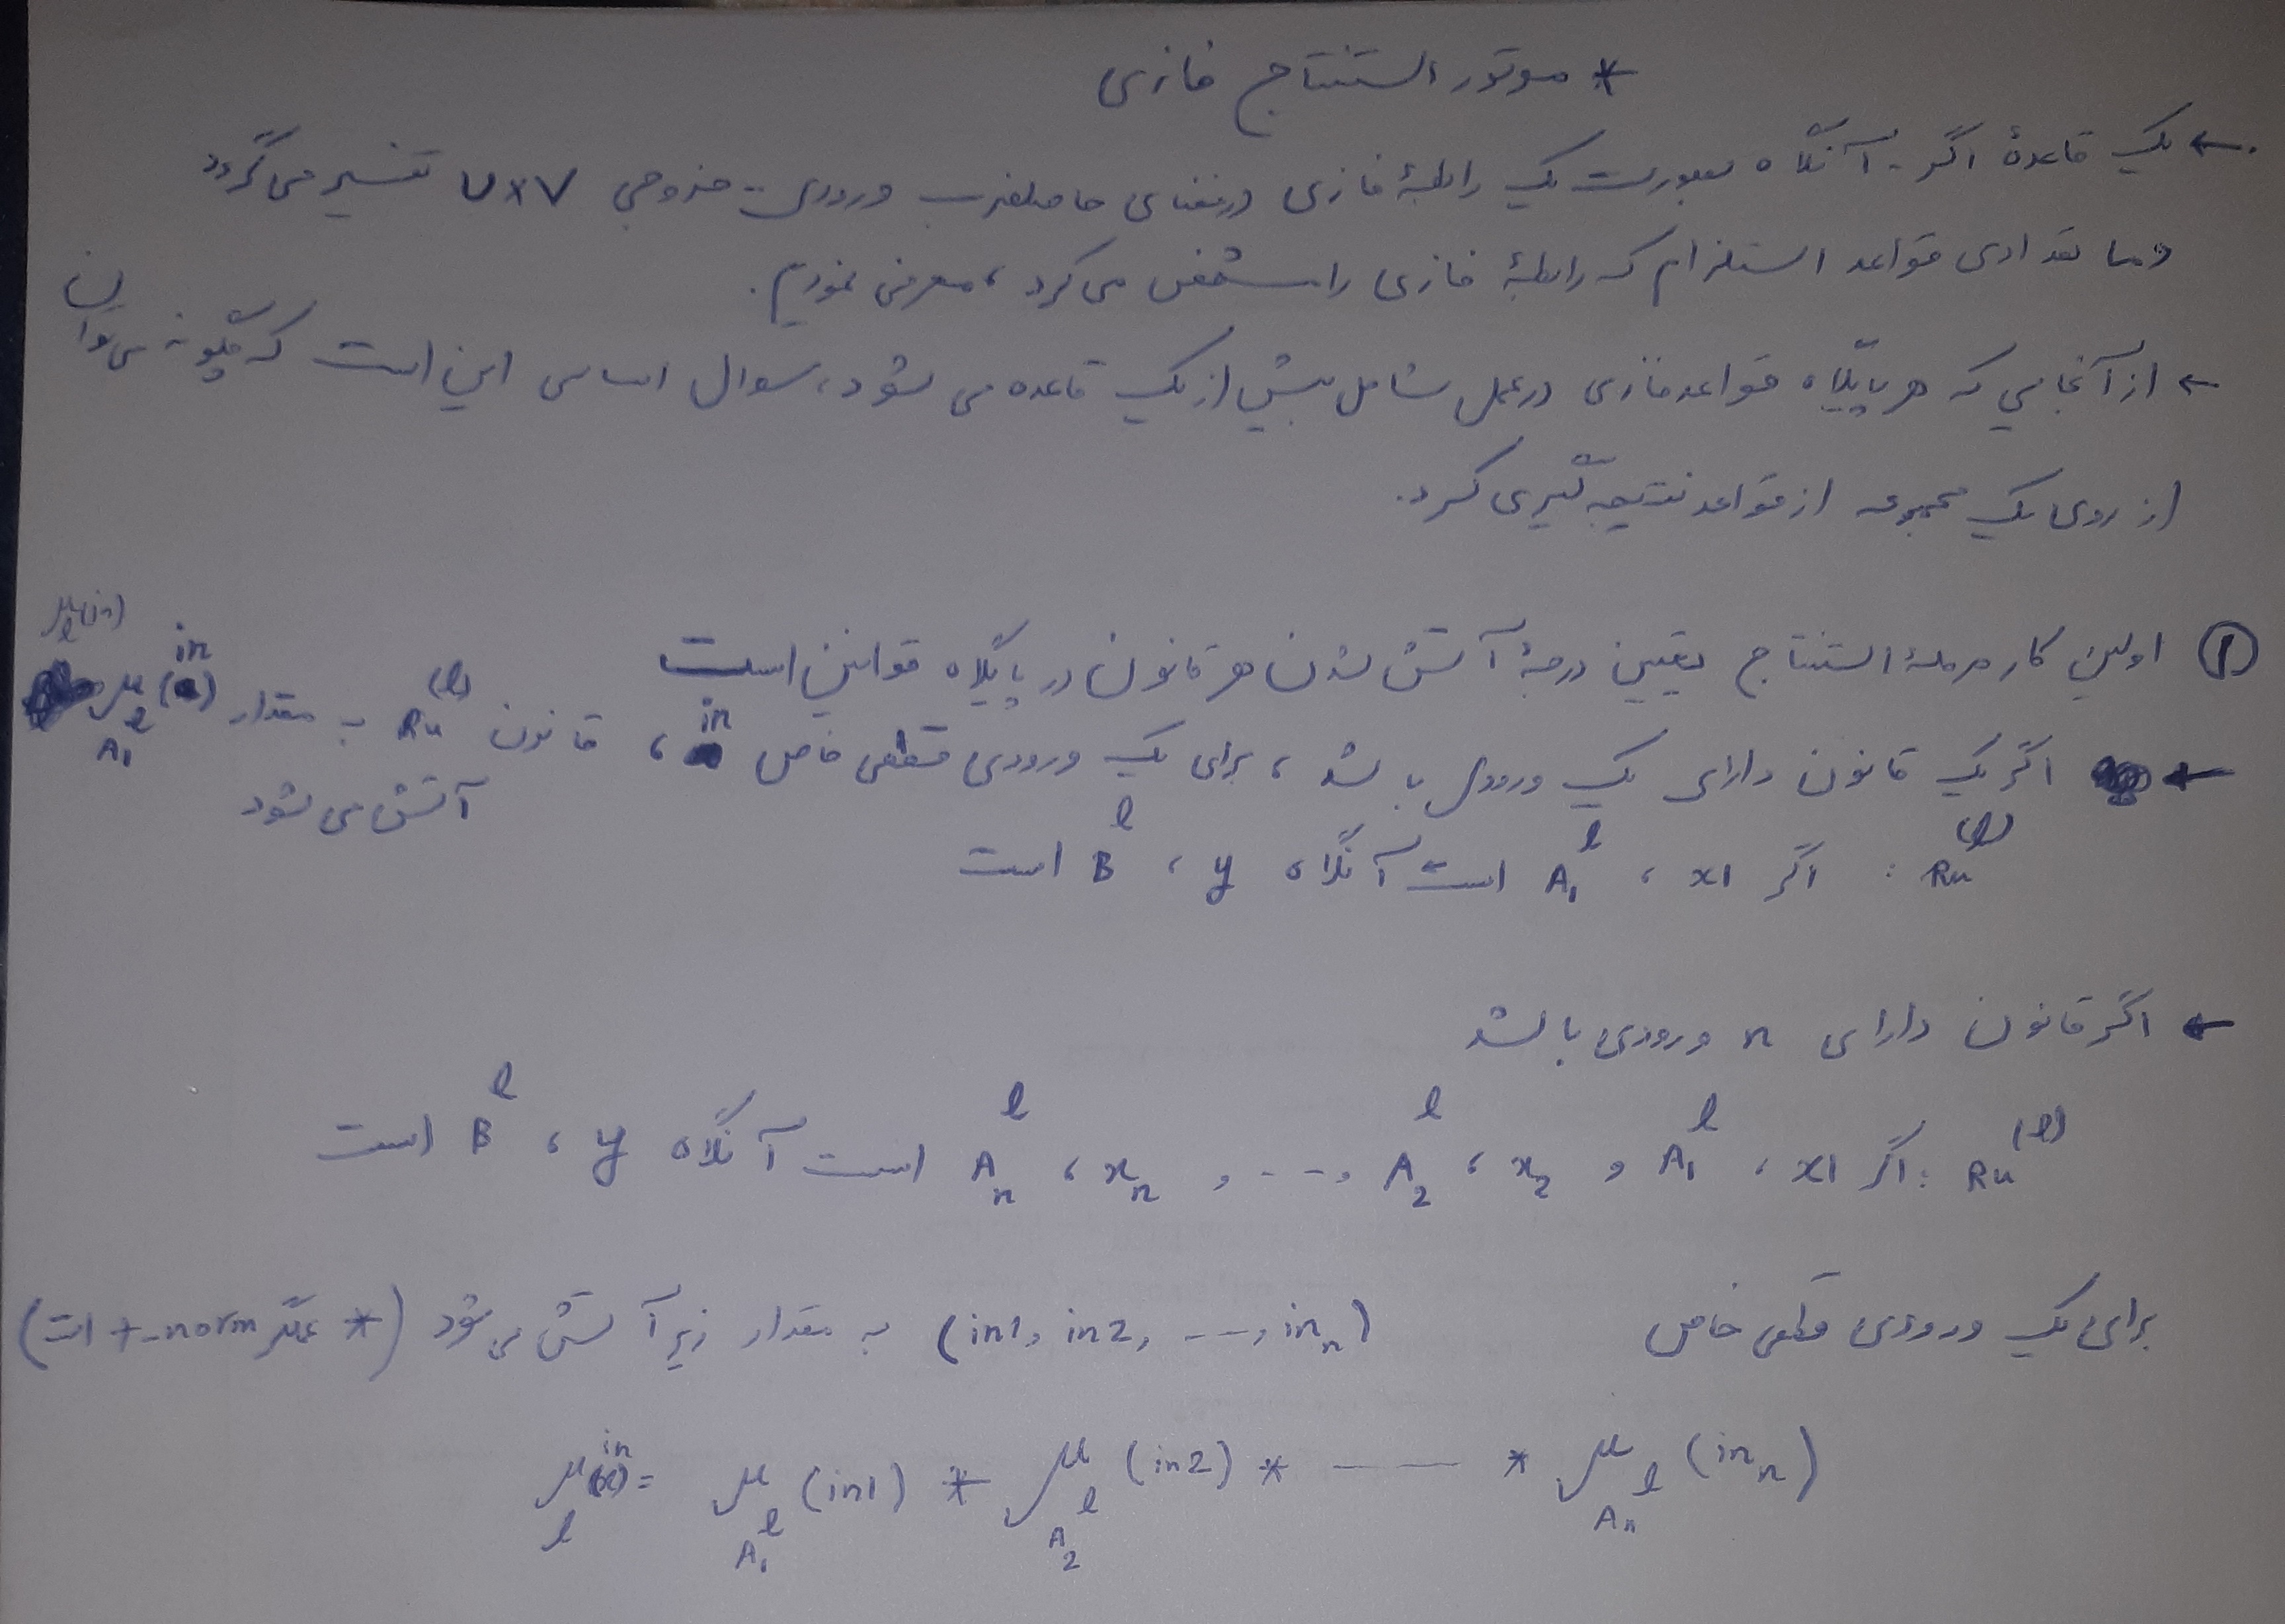 * موتور استنتاج فازی
← یک قاعدهٔ اگر - آنگاه بصورت یک رابطهٔ فازی در فضای حاصلضرب ورودی - خروجی U×V تفسیر می گردد
و ما تعدادی قواعد استلزام که رابطهٔ فازی را مشخص می کرد ، معرفی نمودیم.
← از آنجایی که هر پایگاه قواعد فازی در عمل شامل بیش از یک قاعده می شود، سوال اساسی این است که چگونه می توان
از روی یک مجموعه از قواعد نتیجه گیری کرد.
① اولین کار مرحلهٔ استنتاج تعیین درجهٔ آتش شدن هر قانون در پایگاه قوانین است
← اگر یک قانون دارای یک ورودی باشد ، برای یک ورودی قطعی خاص in ، قانون Ru^(l) به مقدار μ_{A₁^l}(in) μ_l(in)
آتش می شود
Ru^(l) : اگر x1 ، A₁^l است آنگاه y ، B^l است
← اگر قانون دارای n ورودی باشد
Ru^(l) : اگر x1 ، A₁^l و x₂ ، A₂^l و ... و xₙ ، Aₙ^l است آنگاه y ، B^l است
برای یک ورودی قطعی خاص (in1, in2, ---, inₙ) به مقدار زیر آتش می شود (* عملگر t-norm است)
μ_l(in) = μ_{A₁^l}(in1) * μ_{A₂^l}(in2) * —— * μ_{Aₙ^l}(inₙ)